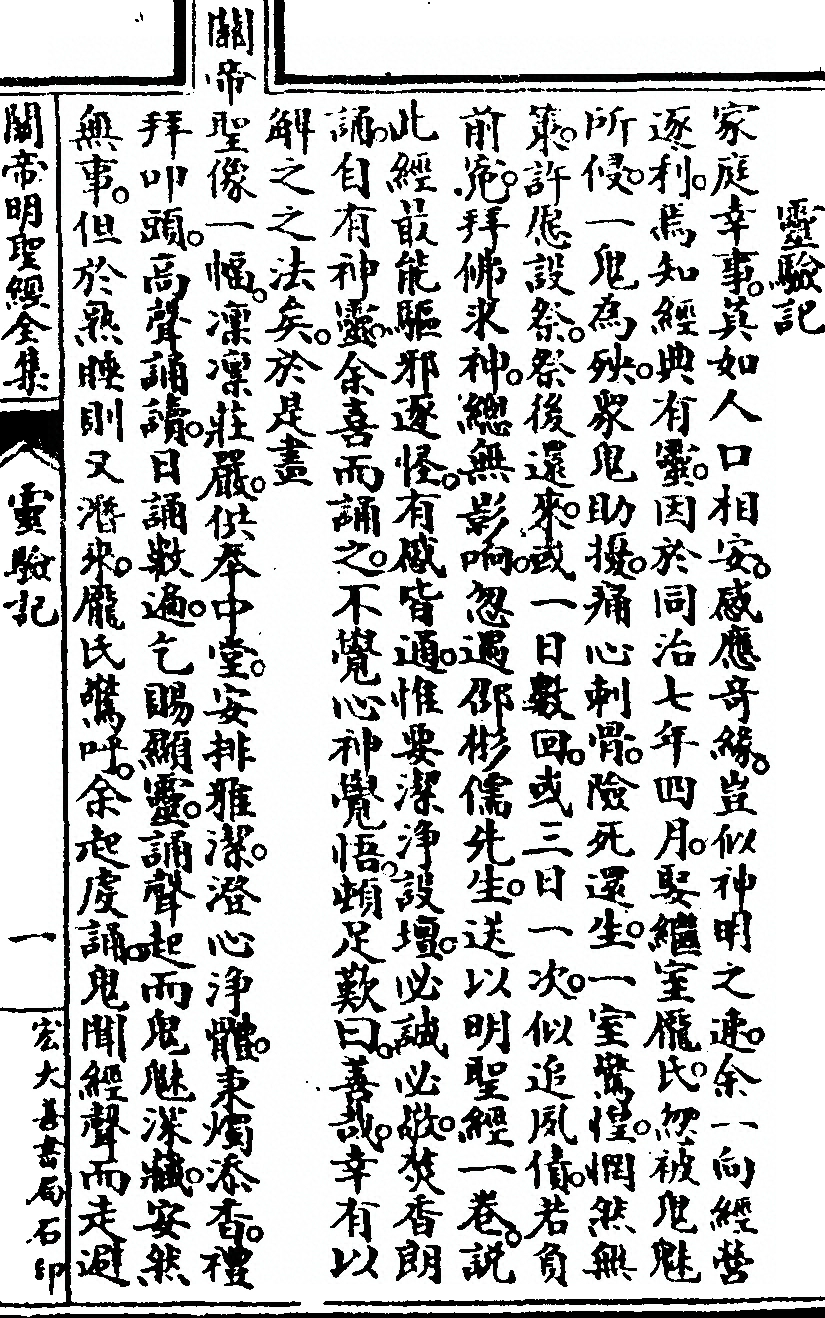 靈驗記
家庭幸事。莫如人口相安。感應奇緣。豈似神明之速。余一向經營
逐利。焉知經典有靈。因於同治七年四月。娶繼室龐氏。忽被鬼魅
所侵。一鬼為殃。眾鬼助擾。痛心刺骨。險死還生。一室驚惶。惘然無
策。許愿設祭。祭後還來。或一日數回。或三日一次。似追夙債。若負
前冤。拜佛求神。總無影响。忽遇鄧彬儒先生。送以明聖經一卷。說
此經最能驅邪逐怪。有感皆通。惟要潔净設壇。必誠必敬。焚香朗
誦。自有神靈。余喜而誦之。不覺心神覺悟。頓足歎曰。善哉。幸有以
解之之法矣。於是畫
關帝聖像一幅。凜凜莊嚴。供奉中堂。安排雅潔。澄心净體。秉燭添香。禮
拜叩頭。高聲誦讀。日誦數遍。乞賜顯靈。誦聲起而鬼魅深藏。安然
無事。但於熟睡則又潛來。龐氏驚呼。余起虔誦。鬼聞經聲而走避
關帝明聖經全集
靈驗記
一
宏大善書局石印